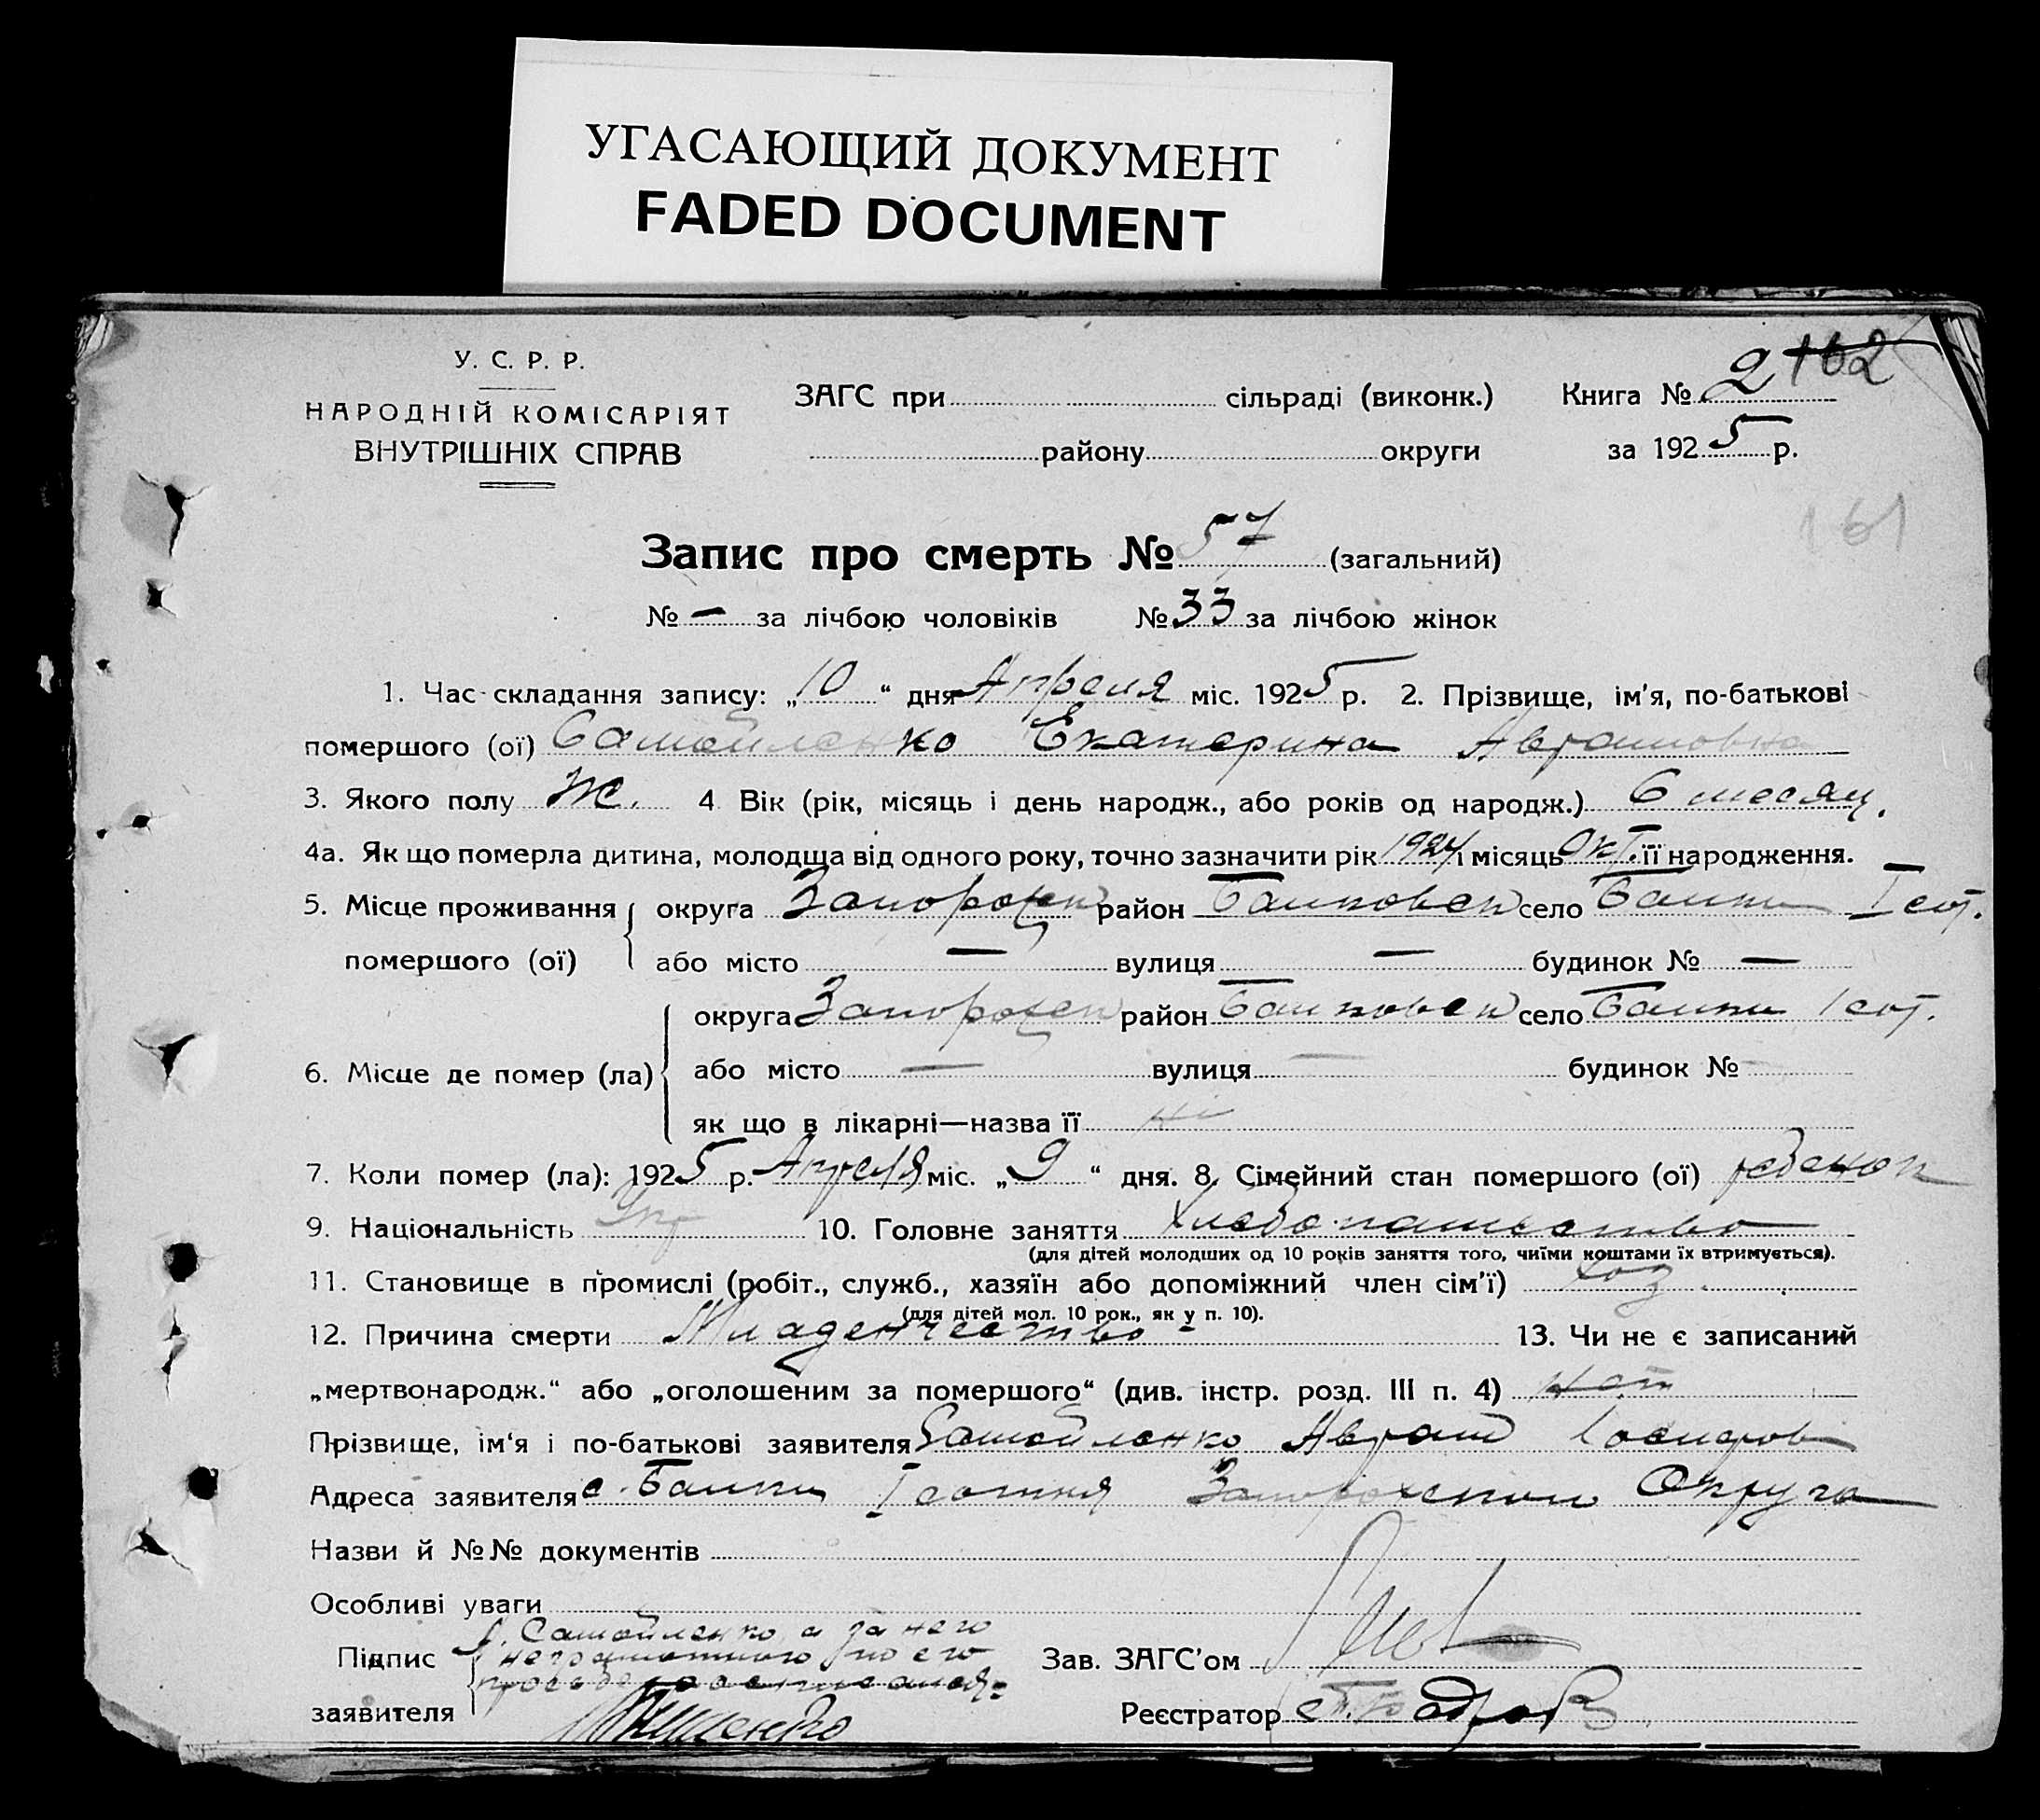 УГАСАЮЩИЙ ДОКУМЕНТ
FADED DOCUMENT
У. С. Р. Р.
НАРОДНІЙ КОМІСАРІЯТ
ВНУТРІШНІХ СПРАВ
ЗАГС при сільраді (виконк.)
району округи
Книга № 2 162
за 1925 р.
161
Запис про смерть № 57 (загальний)
№ — за лічбою чоловіків № 33 за лічбою жінок
1. Час складання запису: „10“ дня Апреля міс. 1925 р. 2. Прізвище, ім'я, по-батькові
помершого (ої) Самойленко Екатерина Аврамовна
3. Якого полу Ж. 4 Вік (рік, місяць і день народж., або років од народж.) 6 месяц.
4а. Як що померла дитина, молодща від одного року, точно зазначити рік 1924 і місяць Окт. її народження.
5. Місце проживання округа Запорожск район Балковск село Балки I сот.
помершого (ої) або місто — вулиця — будинок № —
округа Запорожск район Балковск село Балки I сот.
6. Місце де помер (ла) або місто — вулиця — будинок № —
як що в лікарні—назва її ні
7. Коли помер (ла): 1925 р. Апреля міс. „9“ дня. 8. Сімейний стан помершого (ої) ребенок
9. Національність Укр 10. Головне заняття Хлебопашество
(для дітей молодших од 10 років заняття того, чиїми коштами їх втримується).
11. Становище в промислі (робіт., служб., хазяїн або допоміжний член сім'ї) хоз
(для дітей мол. 10 рок., як у п. 10).
12. Причина смерти Младенчество 13. Чи не є записаний
„мертвонародж.“ або „оголошеним за помершого“ (див. інстр. розд. III п. 4) нет
Прізвище, ім'я і по-батькові заявителя Самойленко Аврам Иосифов
Адреса заявителя с. Балки I сотня Запорожской Округа
Назви й №№ документів
Особливі уваги
Підпис А. Самойленко, а за него
неграмотного по его
просьбе росписался:
заявителя
Зав. ЗАГС'ом
Реєстратор